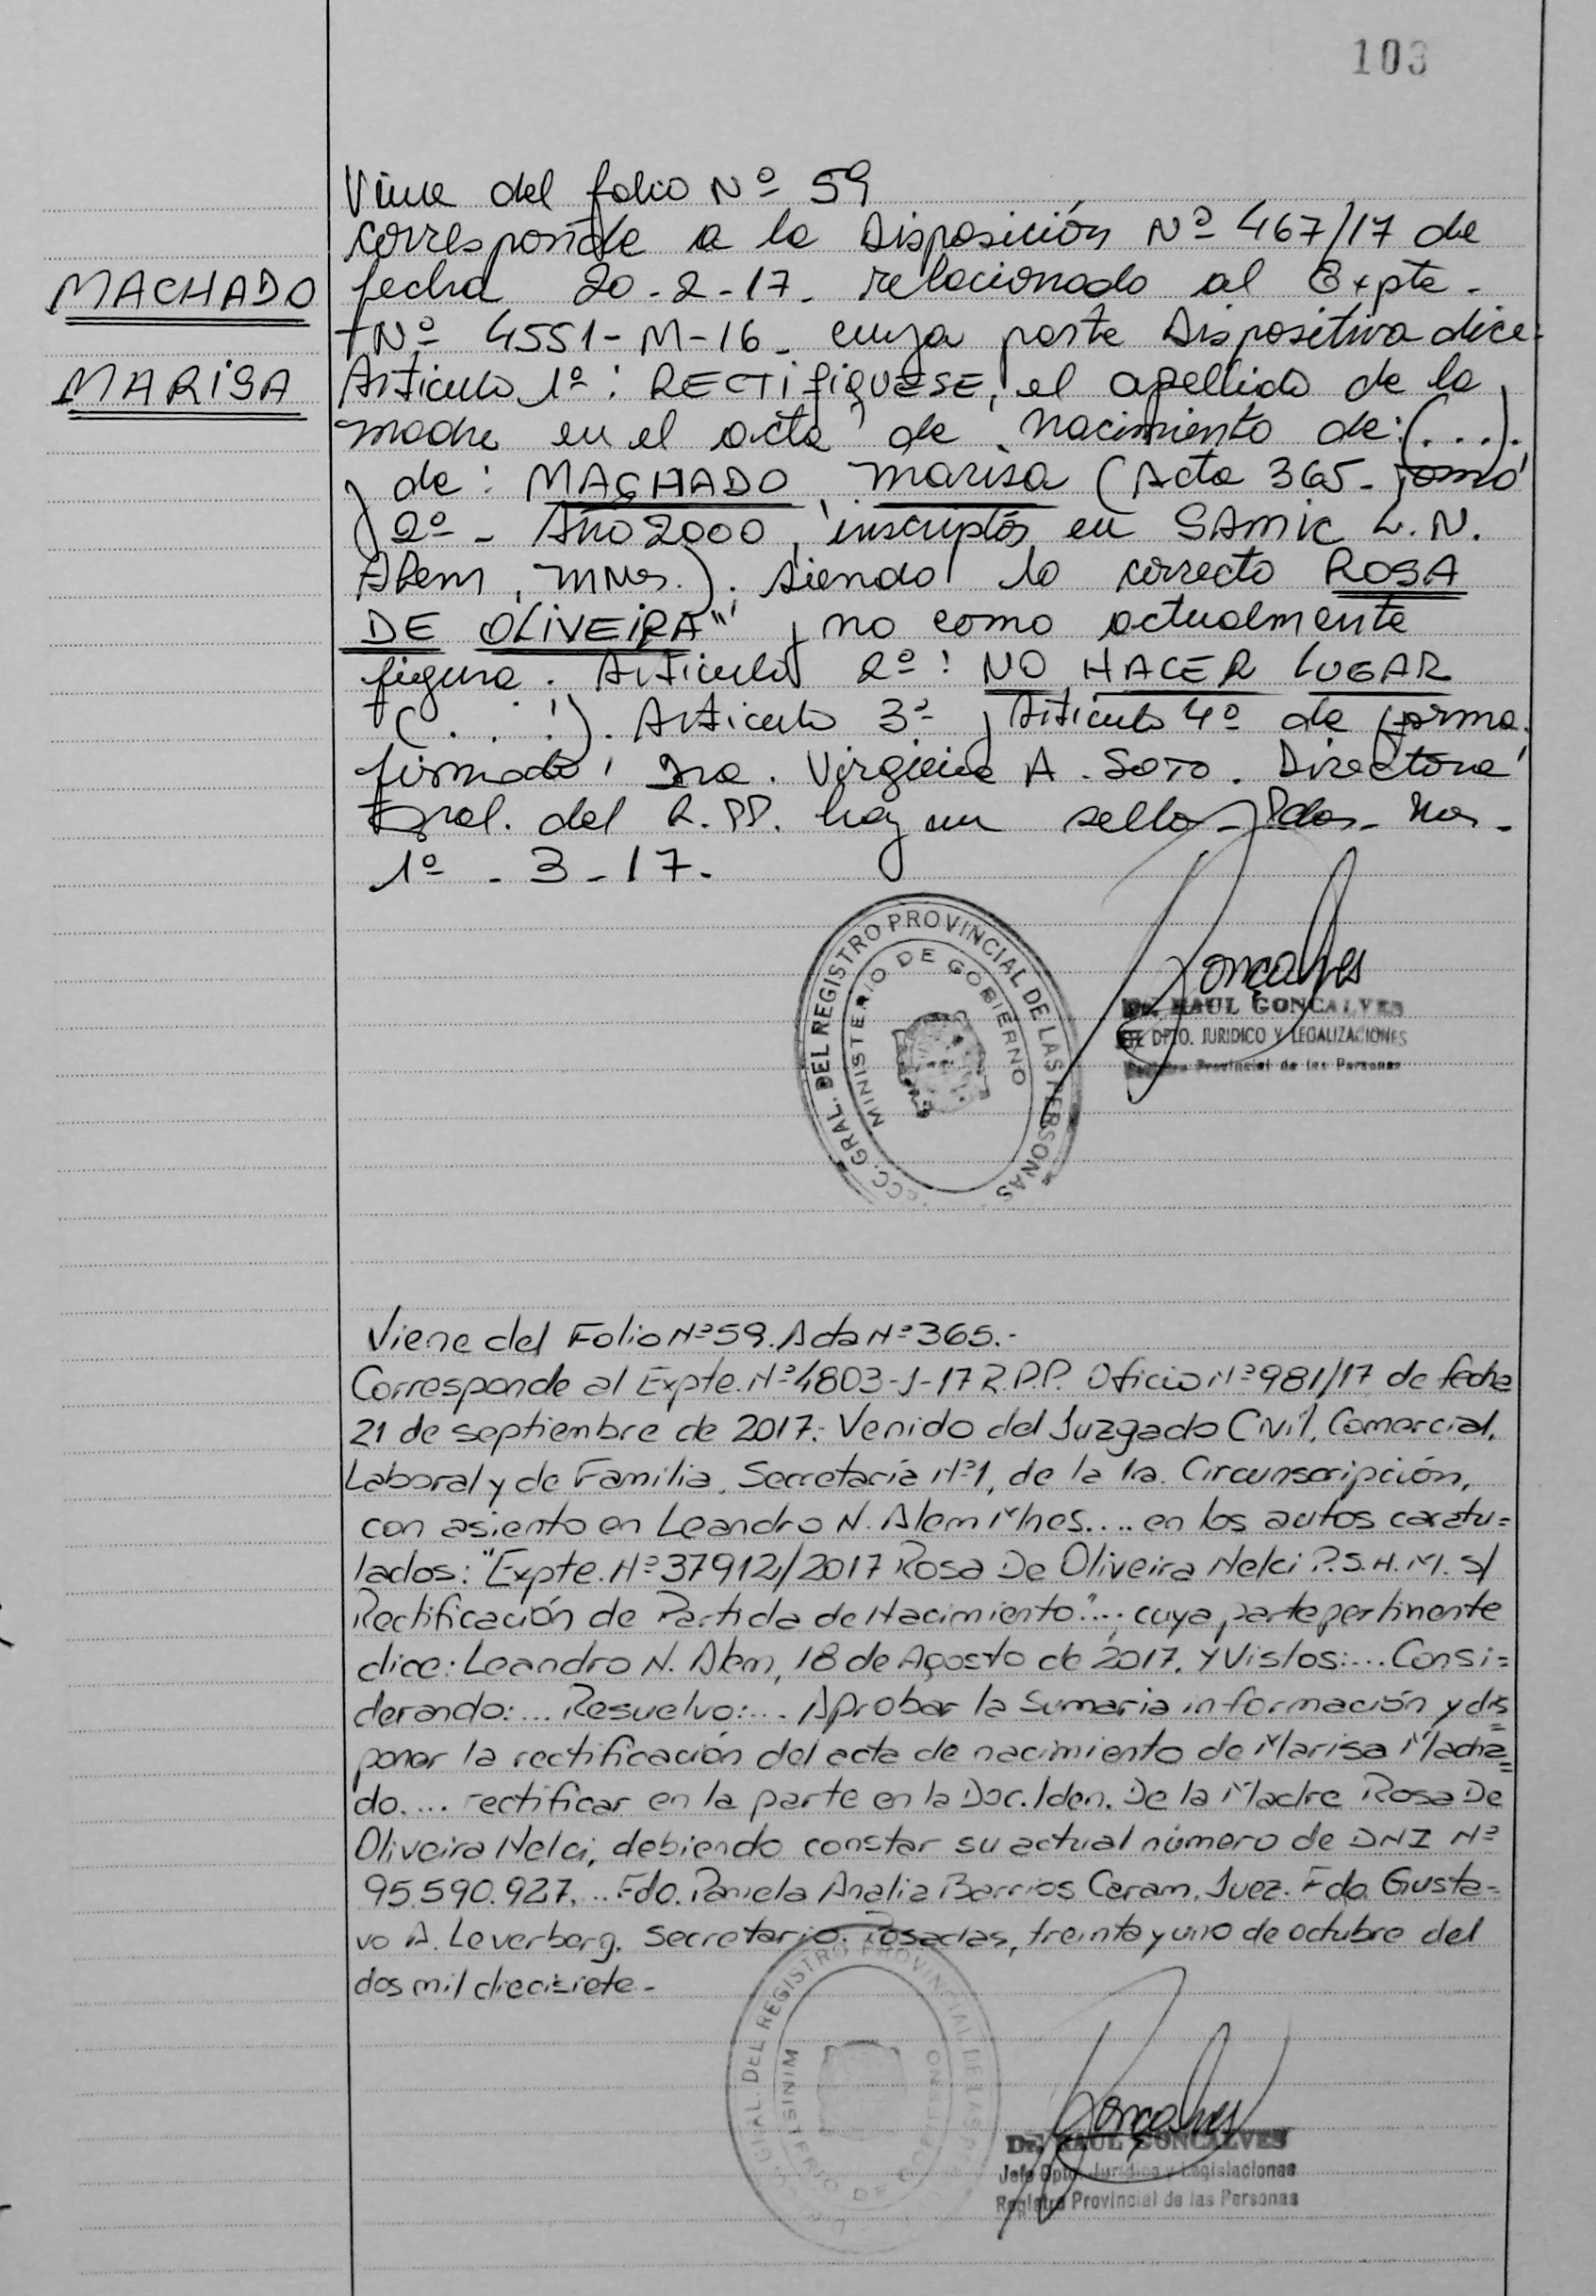 103
MACHADO
MARISA
Viene del folio Nº 59
corresponde a la Disposición Nº 467/17 de
fecha 20-2-17. relacionado al Expte-
Nº 4551-M-16- cuya parte Dispositiva dice:
Articulo 1º: RECTIFIQUESE, el apellido de la
madre en el acta de nacimiento de: (...)
y de: MACHADO, Marisa (Acta 365- tomo
2º- Año 2000, inscriptos en SAMIC L.N.
Alem, Mnes.). siendo lo correcto ROSA
DE OLIVEIRA" y no como actualmente
figura. Articulo 2º: NO HACER LUGAR
(...). Articulo 3º y Articulo 4º de forma.
firmado: Dra. Virginia A. SOTO. Directora
Gral. del R.PP. hay un sello- Pdas- Mes-
1º-3-17.
GRAL. DEL REGISTRO PROVINCIAL DE LAS PERSONAS
MINISTERIO DE GOBIERNO
Goncalves
Dr. RAUL GONCALVES
JEFE DPTO. JURIDICO Y LEGALIZACIONES
Registro Provincial de las Personas
Viene del Folio Nº 59. Acta Nº 365.-
Corresponde al Expte. Nº 4803-J-17 R.P.P. Oficio Nº 981/17 de fecha
21 de septiembre de 2017.- Venido del Juzgado Civil, Comercial,
Laboral y de Familia, Secretaría Nº1, de la 1ra. Circunscripción,
con asiento en Leandro N. Alem Mnes.... en los autos caratu=
lados: "Expte. Nº 37912/2017 Rosa De Oliveira Nelci P.S.H.M. s/
Rectificación de Partida de Nacimiento"...; cuya parte pertinente
dice: Leandro N. Alem, 18 de Agosto de 2017. Y Vistos:... Consi=
derando:... Resuelvo:... Aprobar la Sumaria información y dis
poner la rectificación del acta de nacimiento de Marisa Macha=
do.... rectificar en la parte en la Doc. Iden. De la Madre Rosa De
Oliveira Nelci, debiendo constar su actual número de DNI Nº
95.590.927,... Fdo. Daniela Analia Barrios Caram. Juez. Fdo. Gusta=
vo A. Leverberg. Secretario. Posadas, treinta y uno de octubre del
dos mil diecisiete-
GRAL. DEL REGISTRO PROVINCIAL DE LAS
MINISTERIO DE GOBIERNO
Goncalves
Dr. RAUL GONCALVES
Jefe Dpto. Jurídico y Legislaciones
Registro Provincial de las Personas